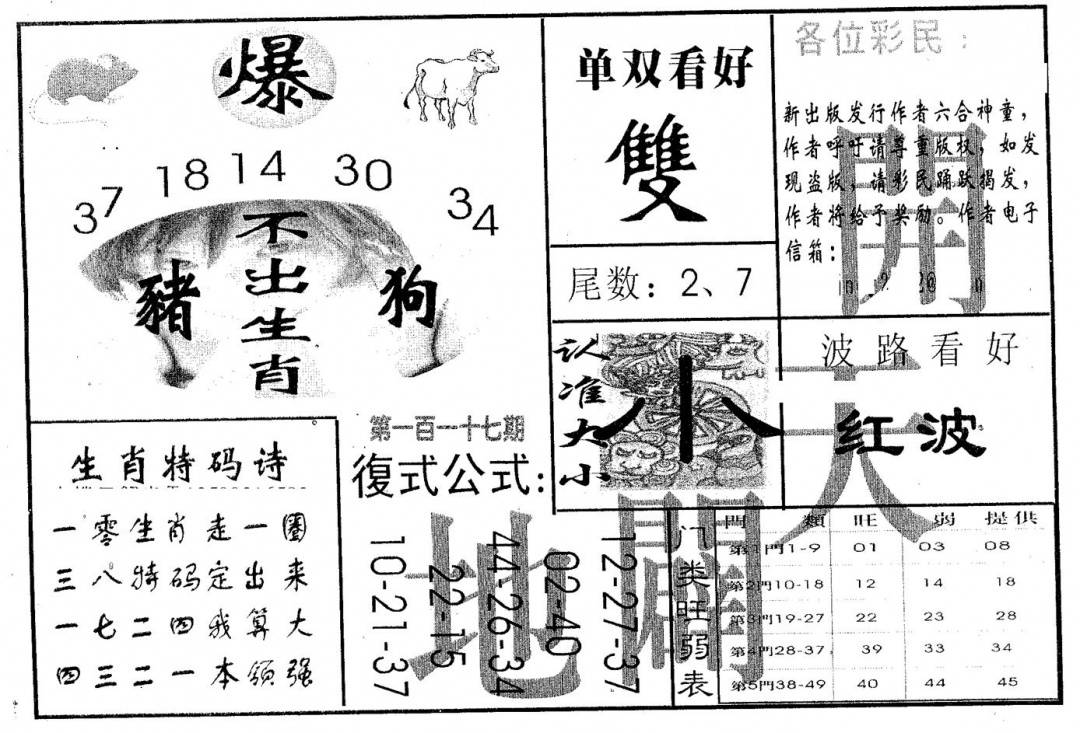 爆
37 18 14 30 34
不出生肖
豬
狗
单双看好
雙
尾数：2、7
各位彩民：
新出版发行作者六合神童，
作者呼吁请尊重版权，如发
现盗版，请彩民踊跃揭发，
作者将给予奖励。作者电子
信箱：
认准大小
小
波路看好
红波
開天
闢地
生肖特码诗
一零生肖走一圈
三八特码定出来
一七二四我算大
四三二一本领强
第一百一十七期
復式公式：
10-21-37
22-15
44-26-34
02-40
12-27-37
门类旺弱表
門類 旺 弱 提供
第1門1-9 01 03 08
第2門10-18 12 14 18
第3門19-27 22 23 28
第4門28-37 39 33 34
第5門38-49 40 44 45